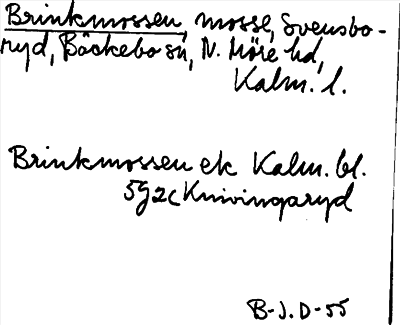 Brinkmossen, mosse, Svensbo-
ryd, Bäckebo sn, N. Möre hd,
Kalm. l.
Brinkmossen ek Kalm. bl.
5g2c Knivingaryd
B-J. D-55